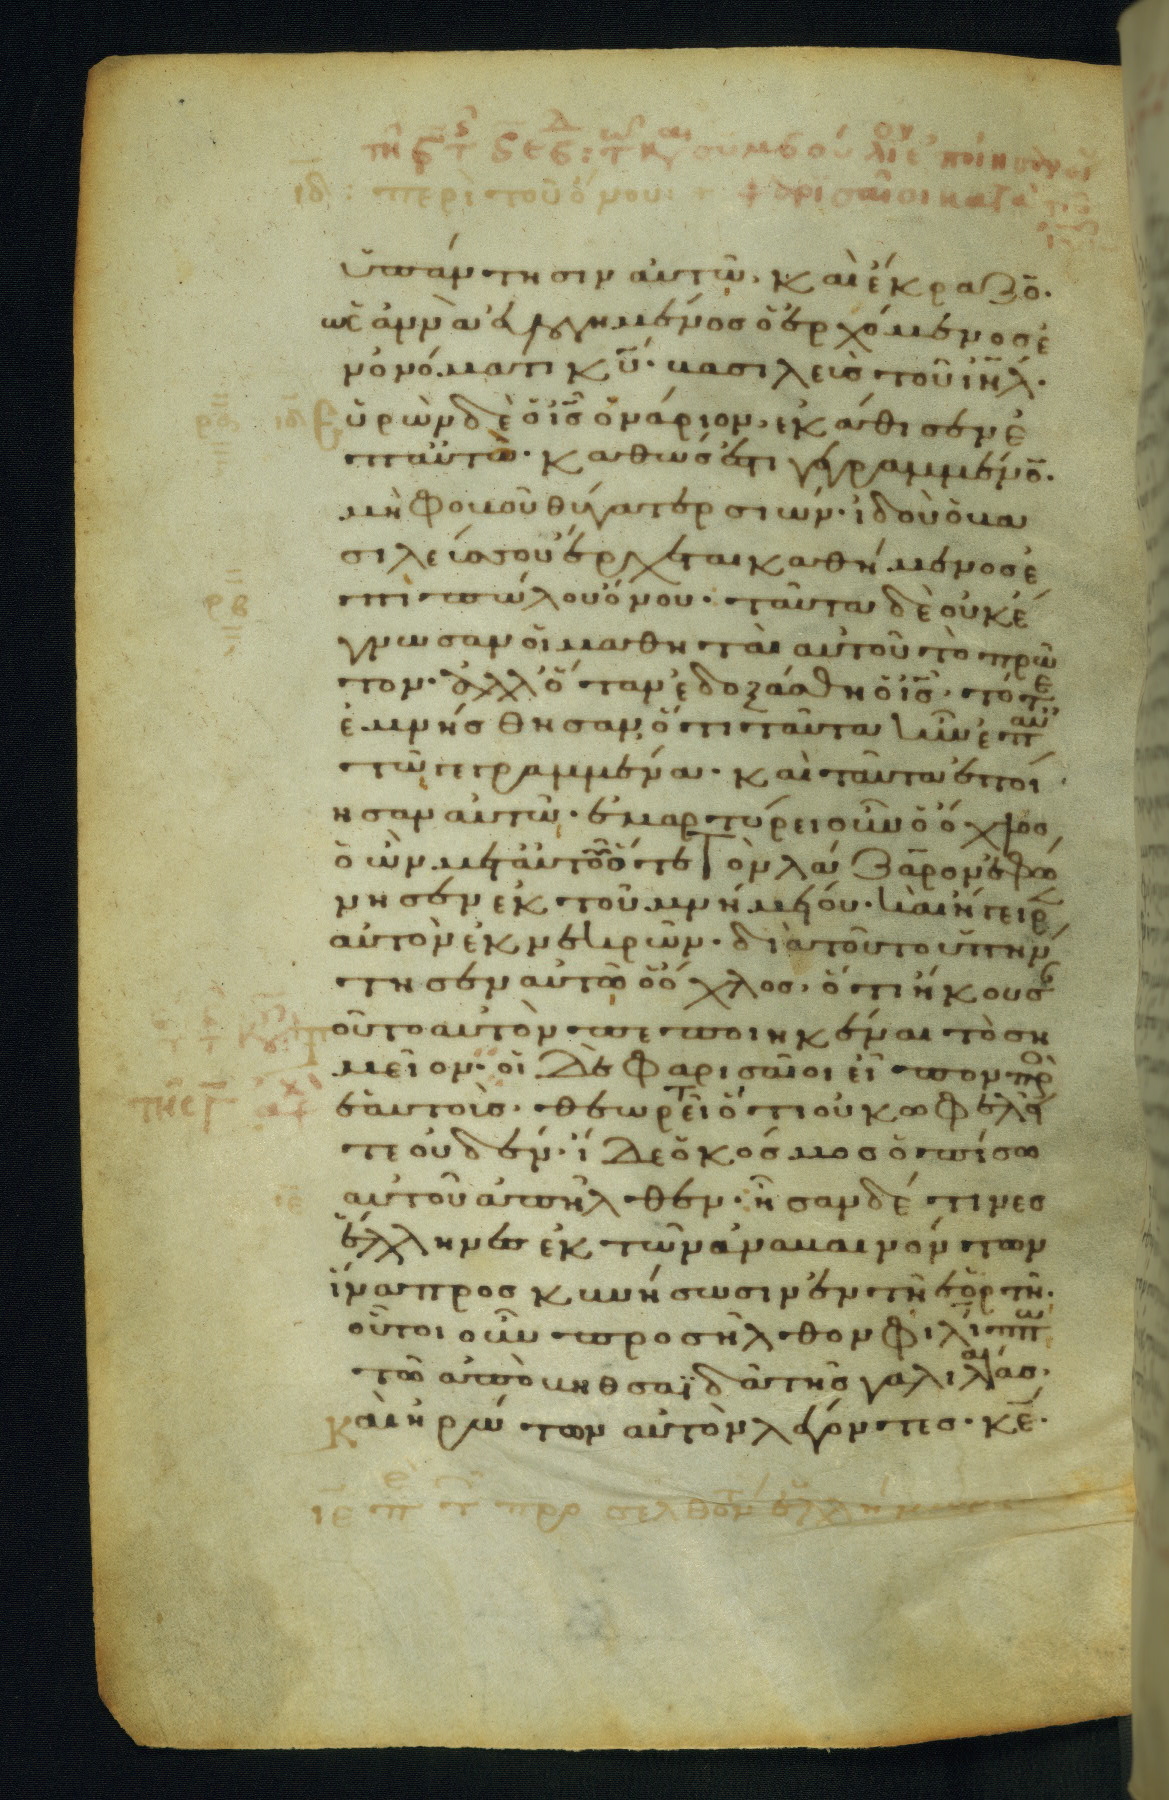 ιδ : περὶ τοῦ ὄνου: +
ὑπάντησιν αὐτῶ, καὶ ἔκραζο̅·
ὡς ἀννὰ εὐλογημένος ὁ ἐρχόμενος ἐ
ν ὀνόματι κ̅υ̅· βασιλεὺς τοῦ ι̅η̅λ̅·
Εὑρὼν δὲ ὁ ι̅ς̅ ὀνάριον, ἐκάθισεν ἐ
π αὐτῶ· καθώς ἐστι γεγραμμένο̅·
μὴ φοβοῦ θύγατερ σιών· ἰδοὺ ὁ βα
σιλεύς σου ἔρχεται καθήμενος ἐ
πὶ πώλου ὄνου· ταῦτα δὲ οὐκ ἔ
γνωσαν οἱ μαθηταὶ αὐτοῦ τὸ πρῶ
τον· ἀλλ' ὅταν ἐδοξάσθη ὁ ι̅ς̅· τότε
ἐμνήσθησαν ὅτι ταῦτα ἦν ἐπ αὐ
τῶ γεγραμμένα· καὶ ταῦτα ἐποί
ησαν αὐτῶ· ἐμαρτύρει οὖν ὁ ὄχλος
ὁ ὢν μετ αὐτοῦ ὅτε τὸν λάζαρον ἐφώ
νησεν ἐκ τοῦ μνημείου· καὶ ἤγειρ
αὐτὸν ἐκ νεκρῶν· διὰ τοῦτο ὑπήν
τησεν αὐτῶ ὁ ὄχλος· ὅτι ἤκουσε
τοῦτο αὐτὸν πεποιηκέναι τὸ ση
μεῖον· οἱ δὲ φαρισαῖοι εἶπον πρὸ
ἑαυτοῖς· θεωρεῖτ ὅτι οὐκ ὠφελεῖ
τε οὐδέν· ἴδε ὁ κόσμος ὀπίσω
αὐτοῦ ἀπῆλθεν· ἦσαν δέ τινες
ἕλληνες ἐκ τῶν ἀναβαινόντων
ἵνα προσκυνήσωσιν ἐν τῆ ἑορτῆ·
οὗτοι οὖν προσῆλθον φιλίππω
τῶ ἀπὸ βηθσαϊδὰ τῆς γαλιλαίας·
Καὶ ἠρώτων αὐτὸν λέγοντες· κ̅ε̅·